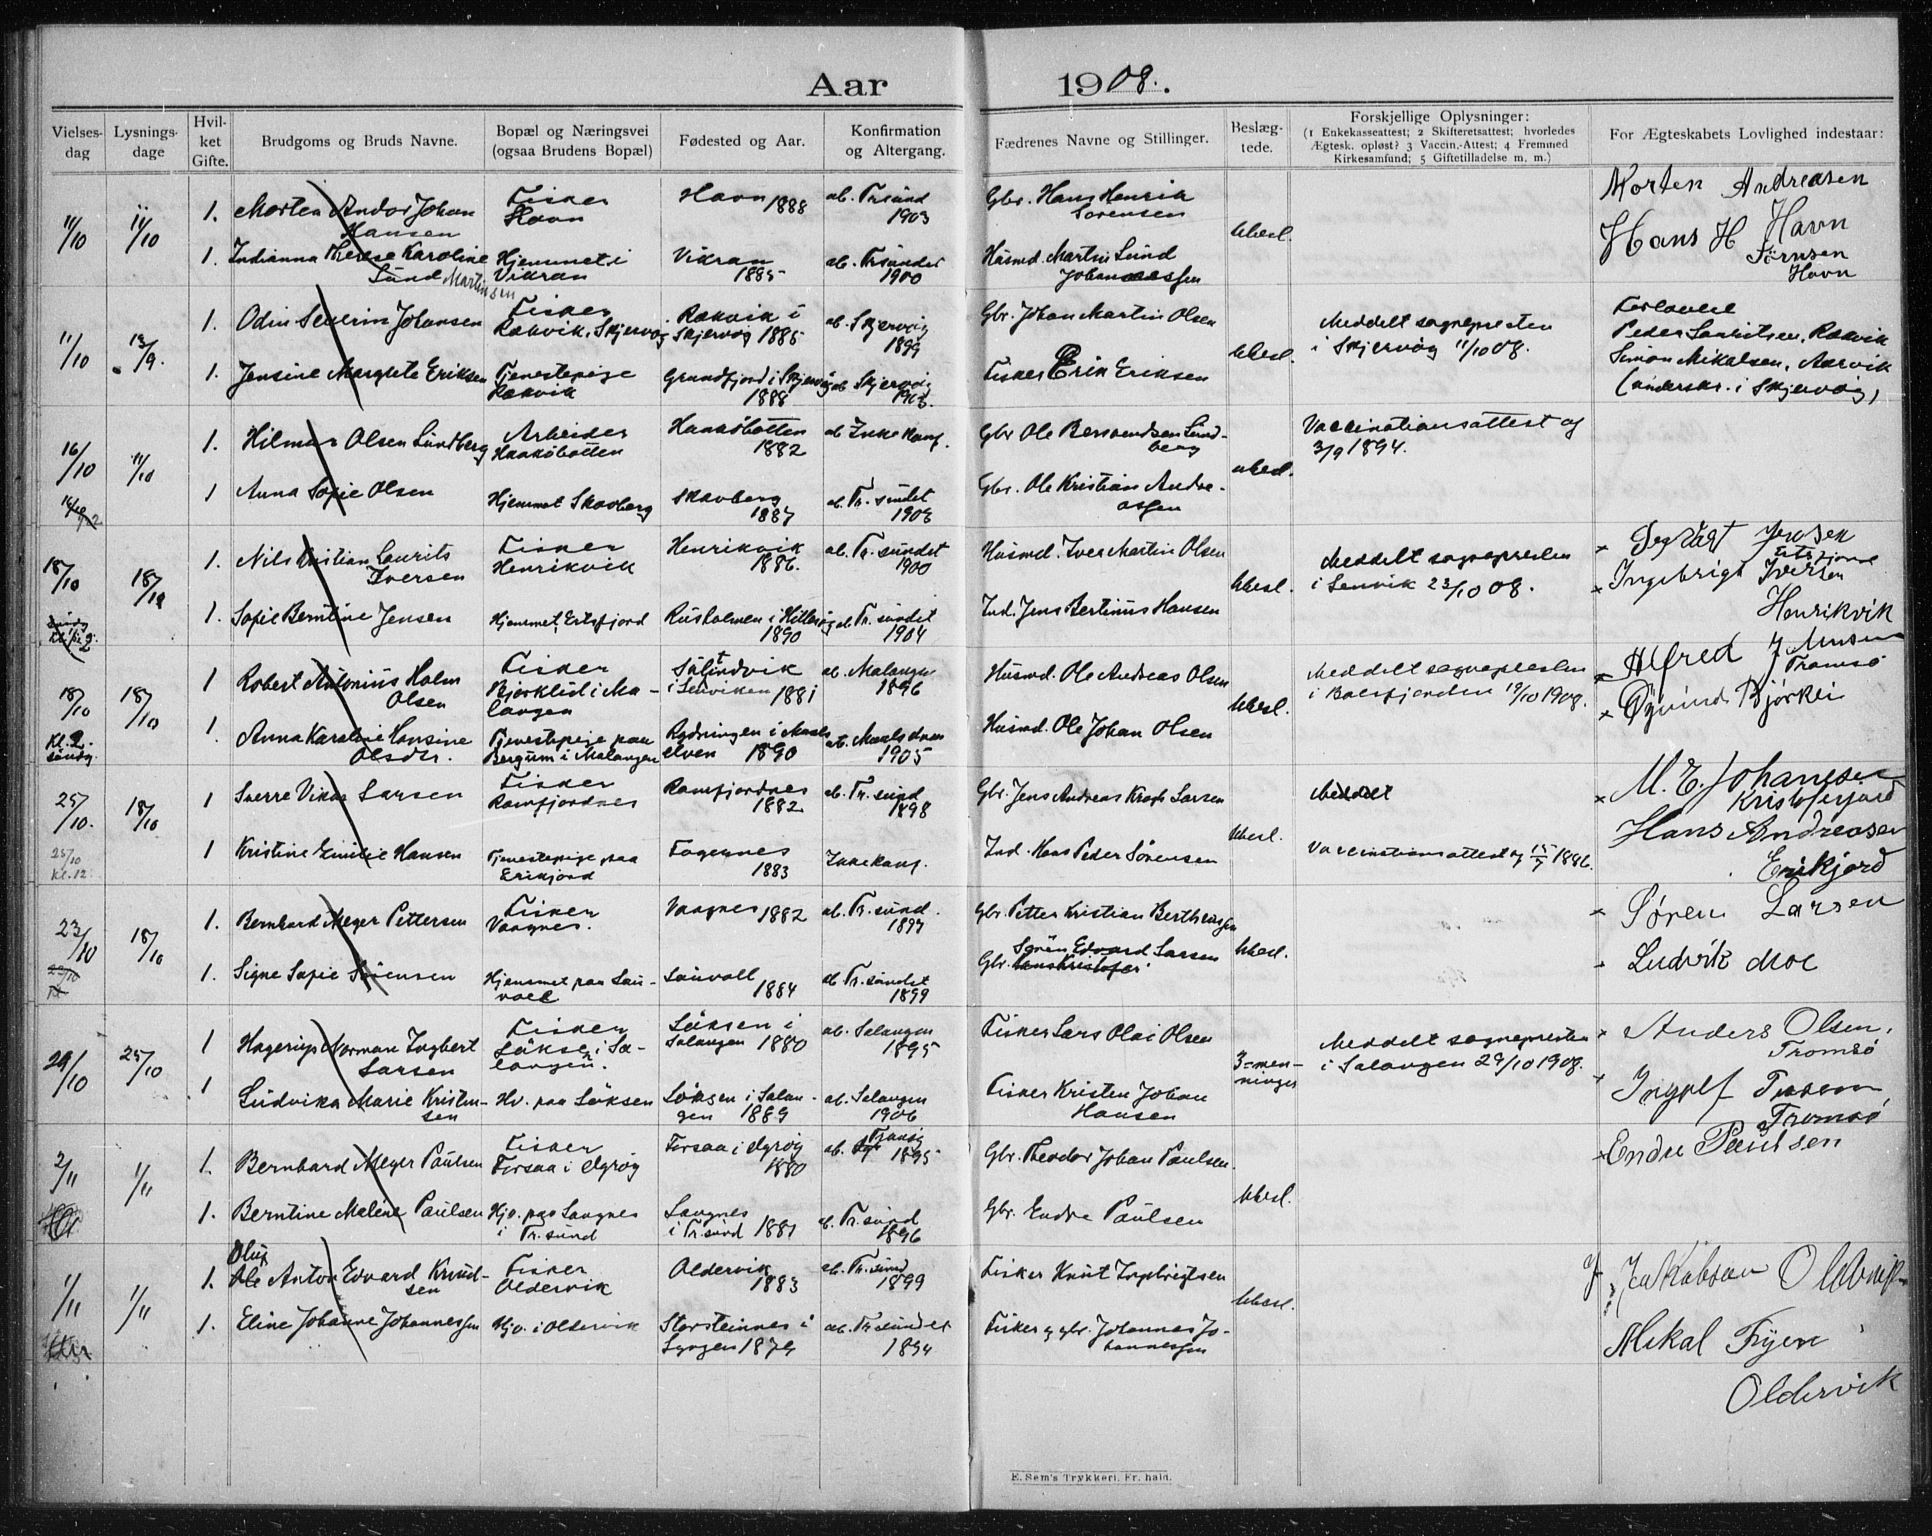 Aar 1908.
Vielses-dag
Lysnings-dage
Hvil-ket Gifte.
Brudgoms og Bruds Navne.
Bopæl og Næringsvei (ogsaa Brudens Bopæl)
Fødested og Aar.
Konfirmation og Altergang.
Fædrenes Navne og Stillinger.
Beslæg-tede.
Forskjellige Oplysninger: (1 Enkekasseattest; 2 Skifteretsattest; hvorledes Ægtesk. opløst? 3 Vaccin.-Attest; 4 Fremmed Kirkesamfund; 5 Giftetilladelse m. m.)
For Ægteskabets Lovlighed indestaar:
11/10 11/10 1. Morten Andor Johan Hansen Fisker Havn Havn 1888 ab. Tr.sund 1903 Gbr. Hans Henrik Sørensen Ubesl. Morten Andreasen Havn
1. Indianna Therese Karoline Lund Martinsen Hjemmet i Vikran Vikran 1885 ab. Tr.sundet 1900 Husmd. Martin Lund Johannessen Hans H Sørnsen Havn
11/10 13/9. 1. Odin Severin Johansen Fisker Rakvik, Skjervøg Rakvik i Skjervøg 1885 ab. Skjervøg 1899 Gbr. Johan Martin Olsen Ubesl. Meddelt sognepresten i Skjervøg 11/10 08. Forlovere Peder Lauritsen, Rakvik
1. Jensine Margrete Eriksen Tjenestepige Rakvik Grundfjord i Skjervøg 1888 ab. Skjervøg 1903. Fisker Erik Eriksen Simon Mikalsen, Aarvik (underskr. i Skjervøg)
16/10 11/10 1. Hilmar Olsen Lundberg Arbeider Haakøbotten Haakøbotten 1882 ab Ikke konf. Gbr Ole Berntsen Lundberg ubesl. Vaccinationsattest og 3/9 1894.
1 Anna Sofie Olsen Hjemmet Skavberg Skavberg 1887 ab. Tr. sundet 1903 Gbr. Ole Kristian Andreassen
18/10 18/10 1. Nils Kristian Laurits Iversen Fisker Henrikvik Henrikvik 1886. ab. Tr. sundet 1900 Husmd. Iver Martin Olsen Ubesl. Meddelt sognepresten i Lenvik 23/10 08. Jensen Ertsfjord
1. Sofie Berntine Jensen Hjemmet, Ertsfjord Rusholmen i Hillesøg 1890 ab Tr. sundet 1904 Ind. Jens Bertinus Hansen Ingebrigt Iversen Henrikvik
18/10 18/10 1 Robert Antonius Holm Olsen Fisker Bjørklid i Malangen i Lenviken 1881 ab. Malangen 1896 Husmd. Ole Andreas Olsen Ubesl. Meddelt sognepresten i Balsfjorden 19/10 1908. Alfred J Tromsø
Kl. 2. søndg. 1 Anna Karoline Hansine Olsdtr. Tjenestepige paa Bergum i Malangen Rydningen i Maalselven 1890 ab. Maalselven 1905 Husmd. Ole Johan Olsen Øyvind Bjørkli
25/10. 18/10 1 Sverre Viktor Larsen Fisker Ramfjordnes Ramfjordnes 1882 ab. Tr. sund 1898 Gbr. Jens Andreas Krogh Larsen Ubesl. Meddelt M. E. Johansen Kristoferjord
25/10 kl. 12 1 Kristine Emilie Hansen Tjenestepige paa Erikjord Fagernes 1883 Ikke konf. Ind. Hans Peder Sørensen Vaccinationsattest og 15/7 1886. Hans Andreasen Erikjord
23/10 18/10 1. Bernhard Meyer Pettersen Fisker Vaagnes. Vaagnes 1882 ab. Tr. sund. 1897 Gbr. Petter Kristian Bertheussen Ubesl. Søren Larsen
1. Signe Sofie Sørensen Hjemmet paa Lauvoll Lauvoll 1884 ab Tr. sundet 1899 Gbr. Søren Edvard Larsen Ludvik Moe
29/10 25/10 1 Hagerup Norman Ingbert Larsen Fisker Løksen i Salangen. Løksen i Salangen 1880 ab. Salangen 1895 Fisker Lars Olai Olsen 3-menninger Meddelt sognepresten i Salangen 29/10 1908. Anders Olsen, Tromsø
1 Ludvika Marie Kristensen Hv. paa Løksen Løksen i Salangen 1889 ab. Salangen 1906 Fisker Kristen Johan Hansen Ingolf Tromsø
2/11 1/11 1. Bernhard Meyer Paulsen Fisker Forsaa i Dyrøy Forsaa i Dyrøy 1880 ab. Tranøy 1895 Gbr. Theodor Johan Paulsen. Ubesl. Endre Paulsen
1. Berntine Malene Paulsen Hjv. paa Langnes i Tr. sund Langnes i Tr. sund 1881 ab. Tr. sund 1896 Gbr. Endre Paulsen
1/11 1/11 1. Oluf Anton Edvard Knudsen Fisker Oldervik Oldervik 1883 ab. Tr. sund 1899 Fisker Knut Ingebrigtsen Ubesl. J Jakobsen Oldervik
1. Eline Johanne Johannessen Hjv. i Oldervik Storsteinnes i Lyngen 1879 ab. Tr. sundet 1894 Fisker og gbr. Johannes Johannessen Mikal Fryen Oldervik
E. Sem's Trykkeri, Fr. hald.